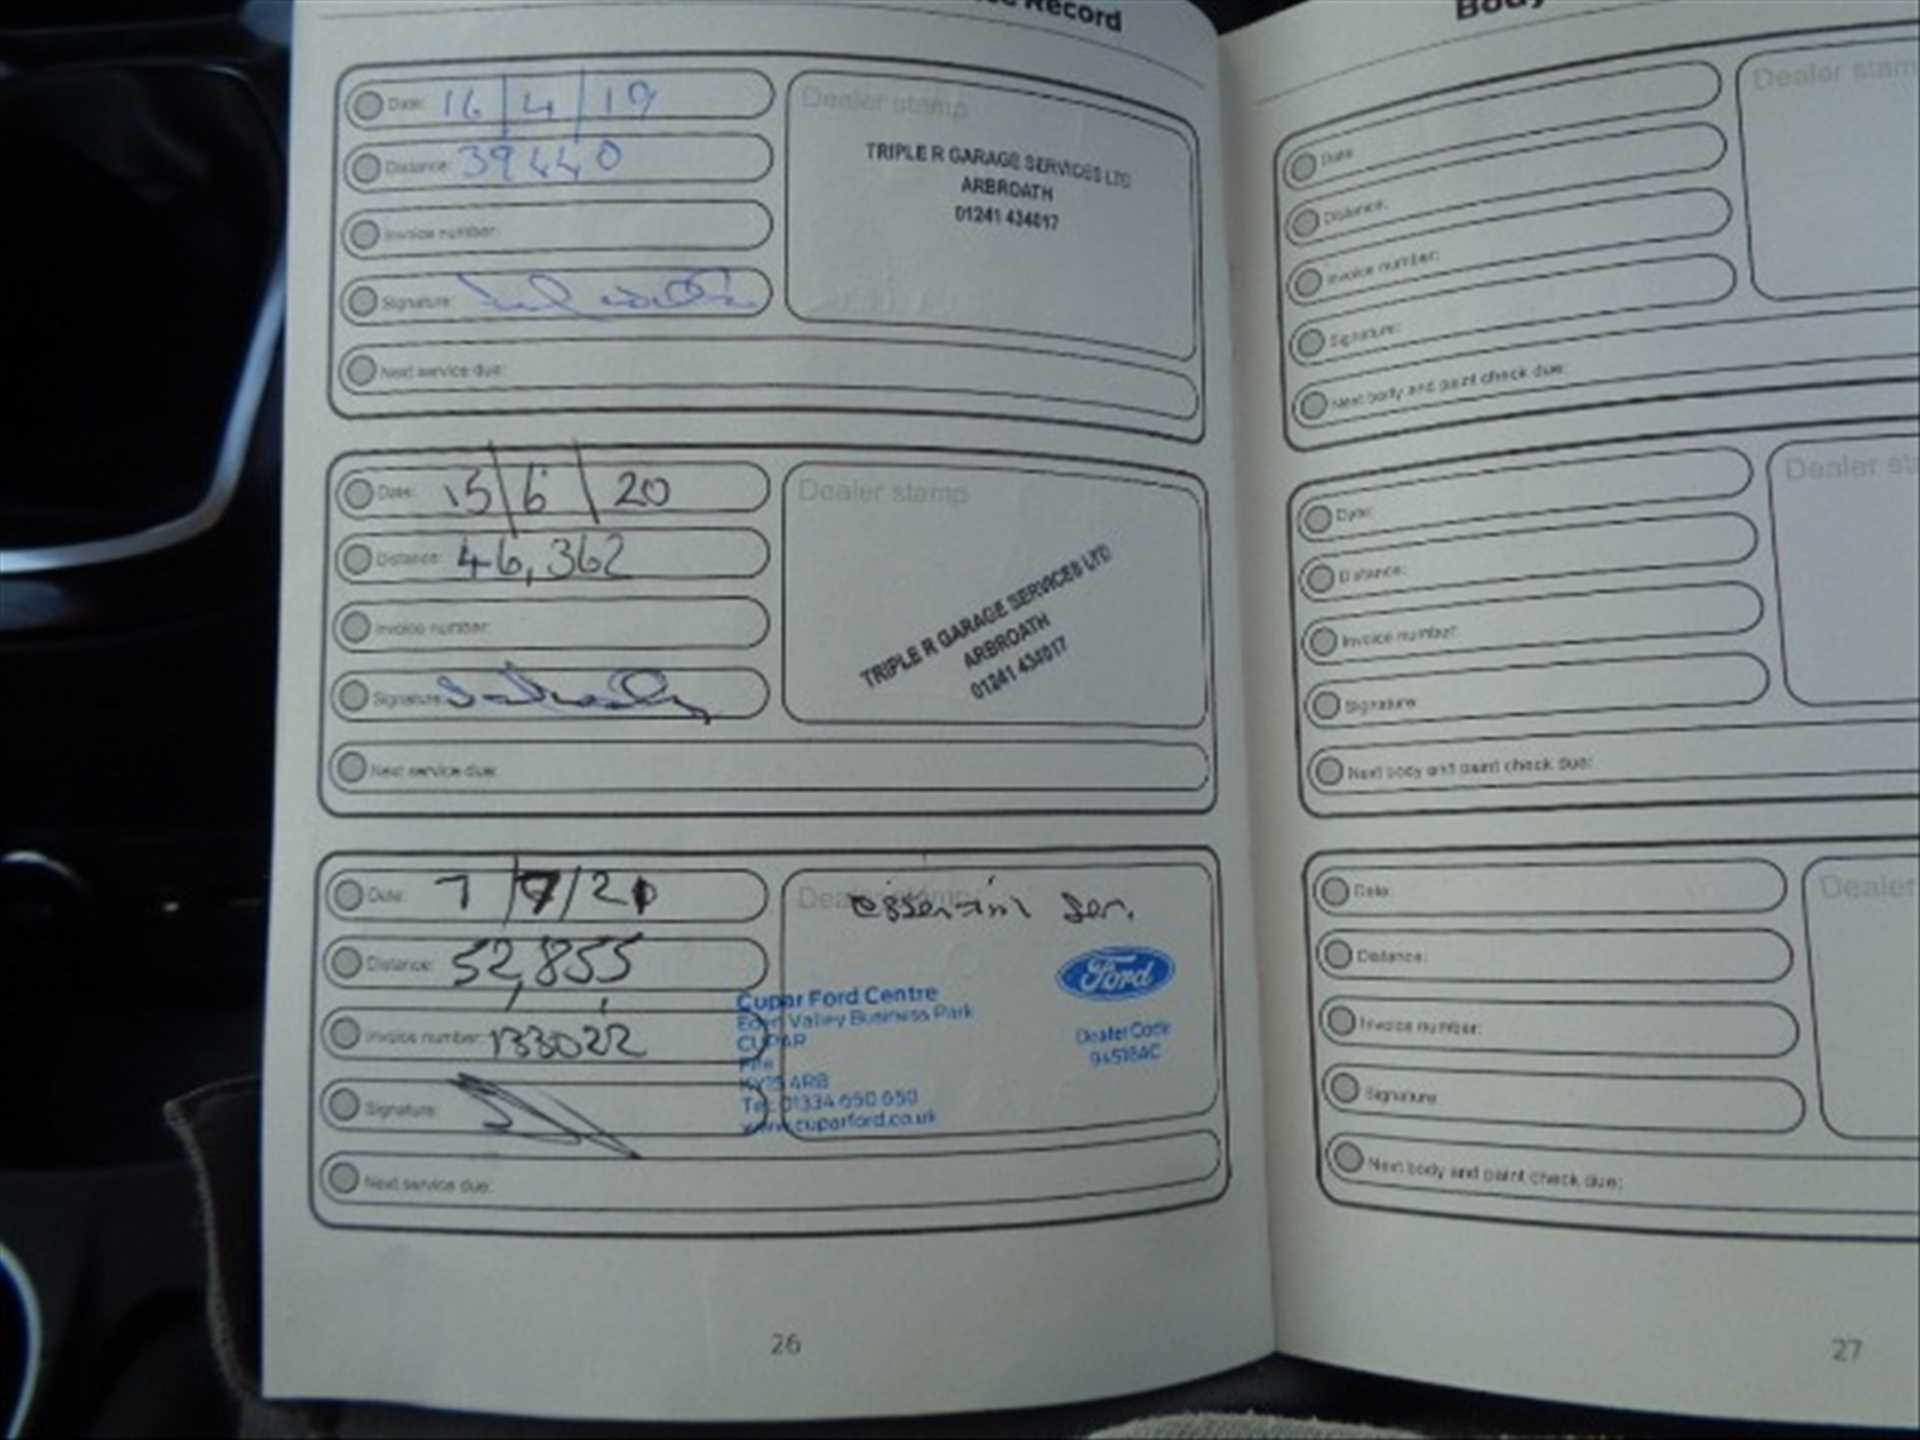 Record
Date: 16/4/19
Distance: 39440
Invoice number:
Signature:
Next service due:
Dealer stamp
TRIPLE R GARAGE SERVICES LTD
ARBROATH
01241 434017
Date: 15/6/20
Distance: 46,362
Invoice number:
Signature:
Next service due:
Dealer stamp
TRIPLE R GARAGE SERVICES LTD
ARBROATH
01241 434017
Date: 7/7/21
Distance: 52,855
Invoice number: 133022
Signature:
Next service due:
Dealer stamp
essential Ser.
Cupar Ford Centre
Eden Valley Business Park
CUPAR
Fife
KY15 4RB
Tel: 01334 650 650
www.cuparford.co.uk
Ford
Dealer Code
26
Body
Date:
Distance:
Invoice number:
Signature:
Next body and paint check due:
Dealer stamp
Date:
Distance:
Invoice number:
Signature:
Next body and paint check due:
Dealer st
Date:
Distance:
Invoice number:
Signature:
Next body and paint check due:
Dealer
27